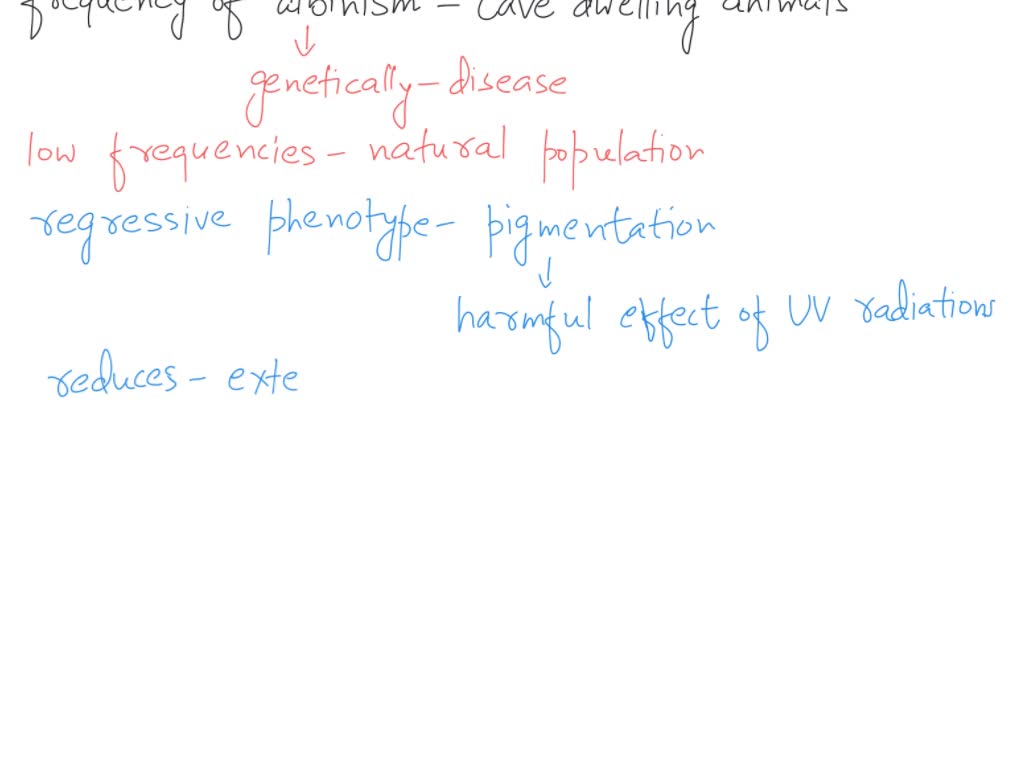 frequency of albinism - cave dwelling animals
↓
genetically - disease
low frequencies - natural population
regressive phenotype - pigmentation
↓
harmful effect of UV radiations
reduces - exte